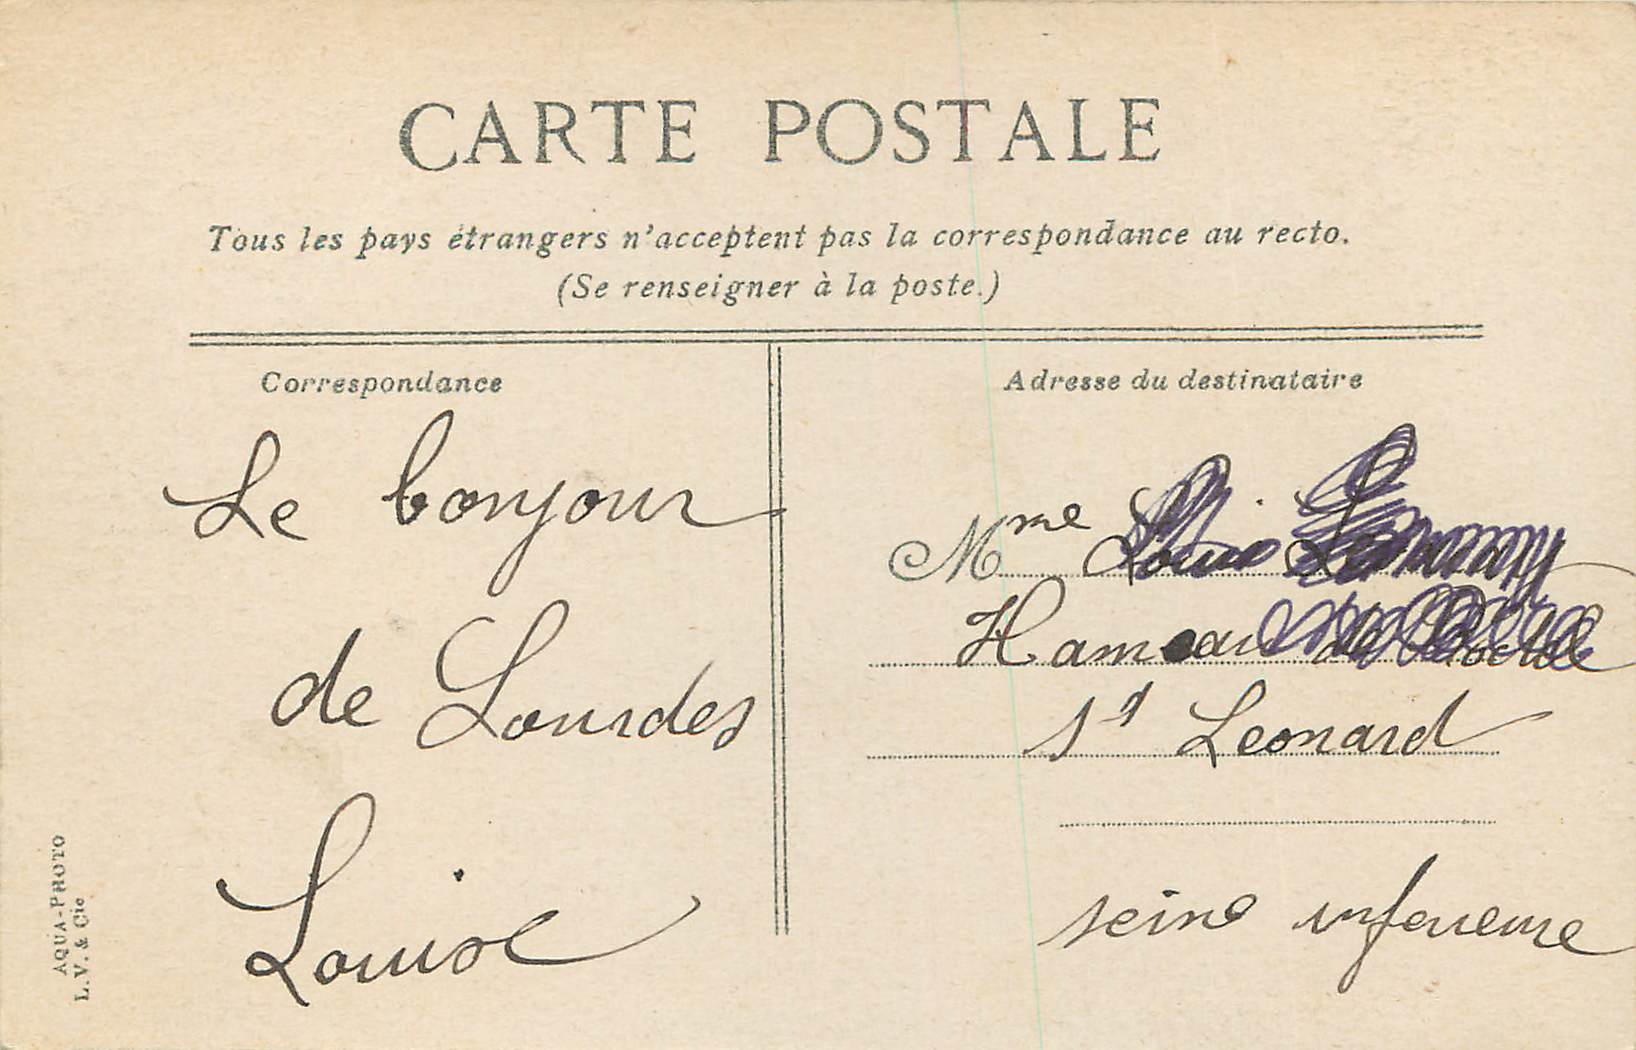 CARTE POSTALE
Tous les pays étrangers n'acceptent pas la correspondance au recto.
(Se renseigner à la poste.)
Correspondance
Le bonjour
de Lourdes
Louise
Adresse du destinataire
Mme
Hameau
St Leonard
seine inferieure
AQUA-PHOTO
L. V. & Cie